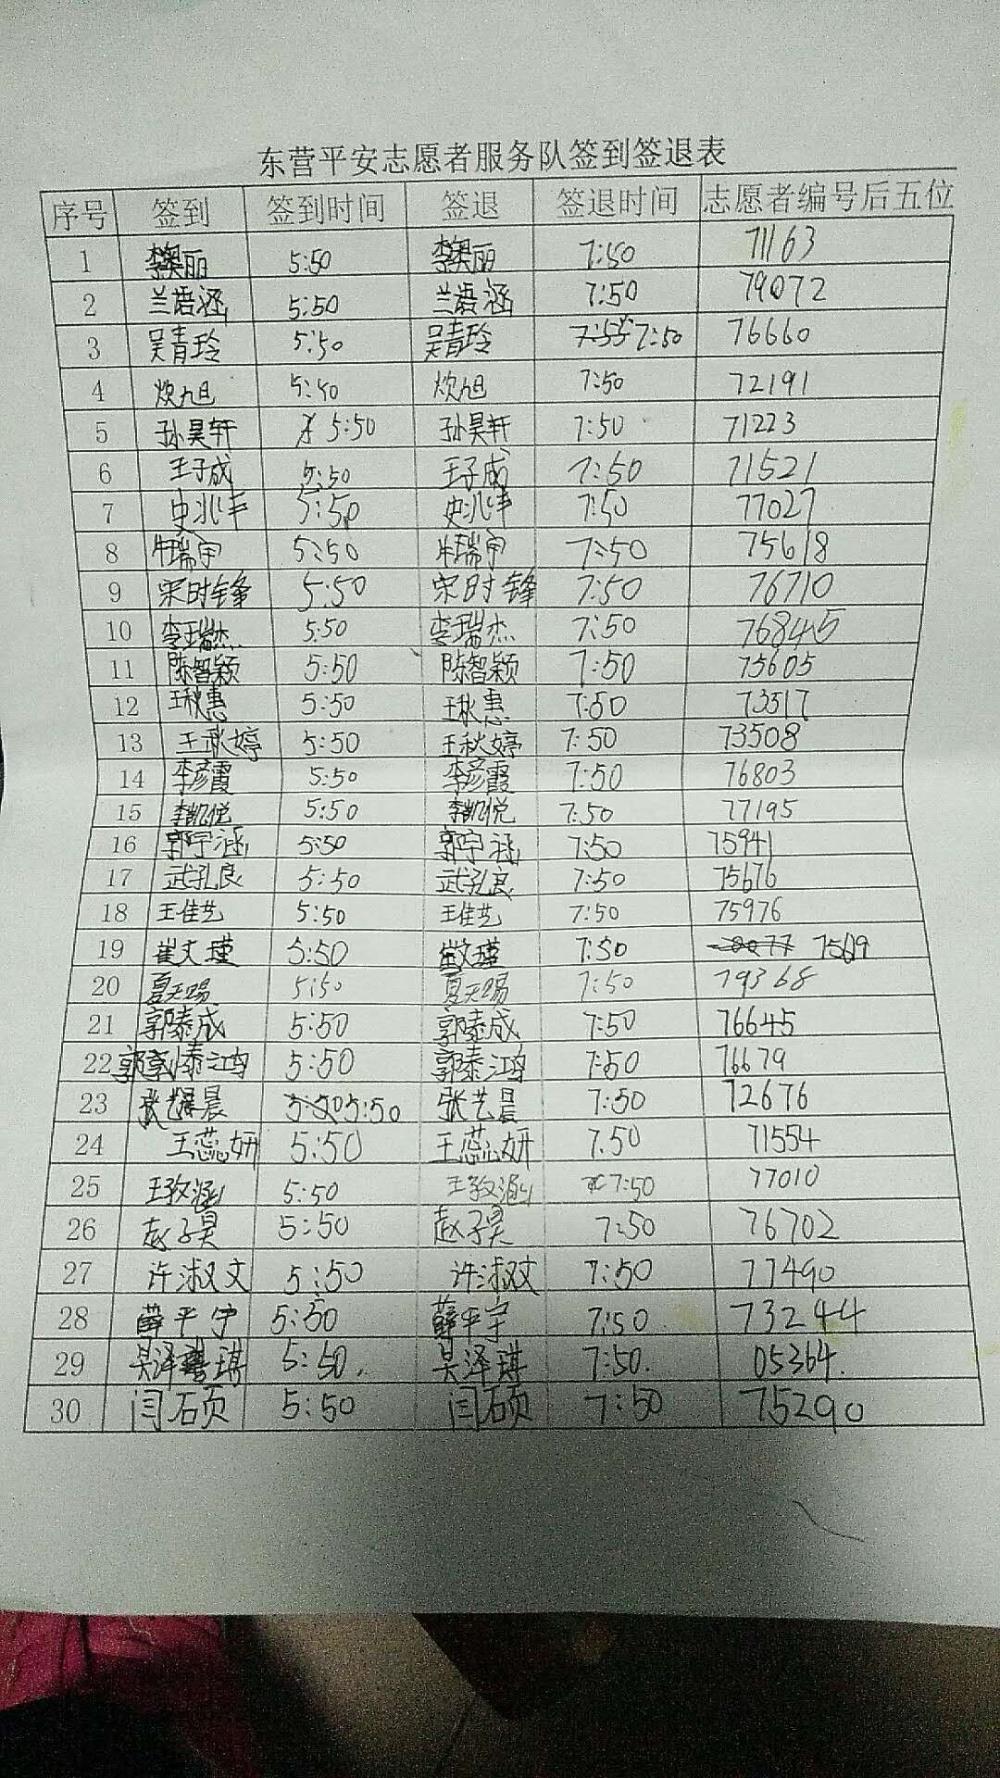 东营平安志愿者服务队签到签退表
序号 签到 签到时间 签退 签退时间 志愿者编号后五位
1 李奥丽 5:50 李奥丽 7:50 71163
2 兰语涵 5:50 兰语涵 7:50 79072
3 吴青玲 5:50 吴青玲 7:55 7:50 76660
4 旭 5:50 旭 7:50 72191
5 孙昊轩 5:50 孙昊轩 7:50 71223
6 王子成 5:50 王子成 7:50 71521
7 史兆沣 5:50 史兆沣 7:50 77027
8 牛瑞宇 5:50 牛瑞宇 7:50 75618
9 宋时锋 5:50 宋时锋 7:50 76710
10 李瑞杰 5:50 李瑞杰 7:50 76845
11 陈智颖 5:50 陈智颖 7:50 75605
12 王秋惠 5:50 王秋惠 7:50 73517
13 王秋婷 5:50 王秋婷 7:50 73508
14 李彦霞 5:50 李彦霞 7:50 76803
15 李凯悦 5:50 李凯悦 7:50 77195
16 郭宇涵 5:50 郭宇涵 7:50 75941
17 武孔良 5:50 武孔良 7:50 75676
18 王佳艺 5:50 王佳艺 7:50 75976
19 崔文瑾 5:50 崔文瑾 7:50
20 夏天赐 5:50 夏天赐 7:50 79368
21 郭泰成 5:50 郭泰成 7:50 76645
22 郭泰鸿 5:50 郭泰鸿 7:50 76679
23 张艺晨 5:50 5:50 张艺晨 7:50 72676
24 王蕊妍 5:50 王蕊妍 7:50 71554
25 王孜涵 5:50 王孜涵 7:50 77010
26 赵子昊 5:50 赵子昊 7:50 76702
27 许淑文 5:50 许淑文 7:50 77490
28 薛平宇 5:50 薛平宇 7:50 73244
29 吴泽琪 5:50. 吴泽琪 7:50. 05364.
30 闫硕 5:50 闫硕 7:50 75290